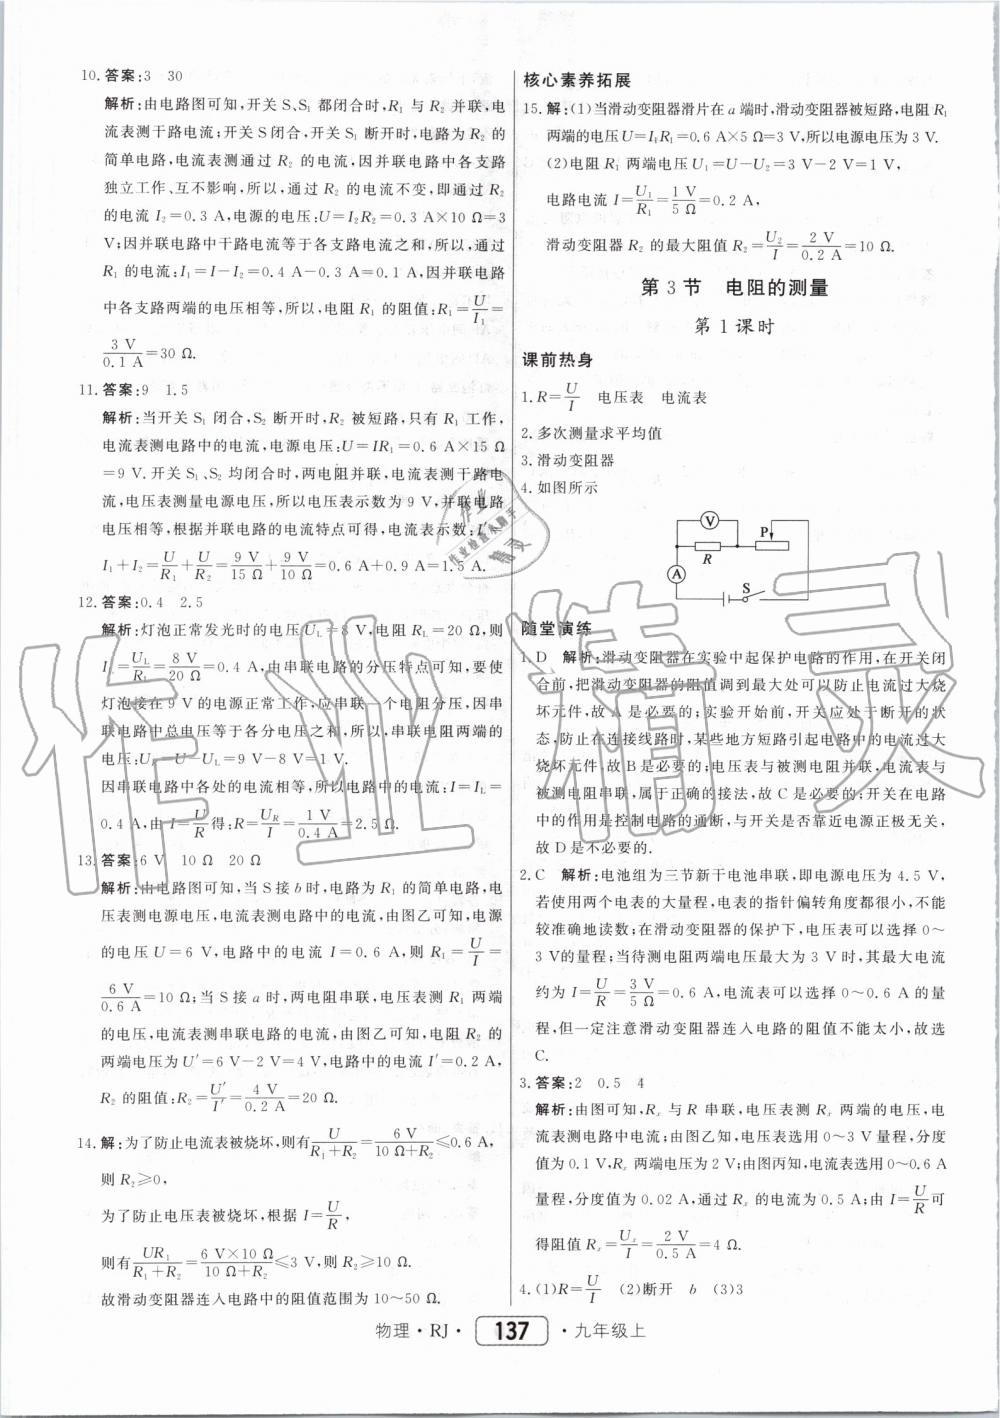 10. 答案:3　30
解析:由电路图可知,开关 S、S₁ 都闭合时,R₁ 与 R₂ 并联,电
流表测干路电流;开关 S 闭合,开关 S₁ 断开时,电路为 R₂ 的
简单电路,电流表测通过 R₂ 的电流,因并联电路中各支路
独立工作、互不影响,所以,通过 R₂ 的电流不变,即通过 R₂
的电流 I₂=0.3 A,电源的电压:U=I₂R₂=0.3 A×10 Ω=3
V;因并联电路中干路电流等于各支路电流之和,所以,通过
R₁ 的电流:I₁=I-I₂=0.4 A-0.3 A=0.1 A,因并联电路
中各支路两端的电压相等,所以,电阻 R₁ 的阻值:R₁=U/I₁=
3 V/0.1 A=30 Ω.
11. 答案:9　1.5
解析:当开关 S₁ 闭合,S₂ 断开时,R₂ 被短路,只有 R₁ 工作,
电流表测电路中的电流,电源电压:U=IR₁=0.6 A×15 Ω
=9 V.开关 S₁、S₂ 均闭合时,两电阻并联,电流表测干路电
流,电压表测量电源电压,所以电压表示数为 9 V,并联电路
电压相等,根据并联电路的电流特点可得,电流表示数:I'=
I₁+I₂=U/R₁+U/R₂=9 V/15 Ω+9 V/10 Ω=0.6 A+0.9 A=1.5 A.
12. 答案:0.4　2.5
解析:灯泡正常发光时的电压 U_L=8 V,电阻 R_L=20 Ω,则
I_L=U_L/R_L=8 V/20 Ω=0.4 A,由串联电路的分压特点可知,要使
灯泡接在 9 V 的电源正常工作,应串联一个电阻分压,因串
联电路中总电压等于各分电压之和,所以,串联电阻两端的
电压:U_R=U-U_L=9 V-8 V=1 V.
因串联电路中各处的电流相等,所以电路中的电流:I=I_L=
0.4 A,由 I=U/R 得:R=U_R/I=1 V/0.4 A=2.5 Ω.
13. 答案:6 V　10 Ω　20 Ω
解析:由电路图可知,当 S 接 b 时,电路为 R₁ 的简单电路,电
压表测电源电压,电流表测电路中的电流,由图乙可知,电源
的电压 U=6 V,电路中的电流 I=0.6 A,则 R₁=U/I=
6 V/0.6 A=10 Ω;当 S 接 a 时,两电阻串联,电压表测 R₁ 两端
的电压,电流表测串联电路的电流,由图乙可知,电阻 R₂ 的
两端电压为 U'=6 V-2 V=4 V,电路中的电流 I'=0.2 A,
R₂ 的阻值:R₂=U'/I'=4 V/0.2 A=20 Ω.
14. 解:为了防止电流表被烧坏,则有U/(R₁+R₂)=6 V/(10 Ω+R₂)≤0.6 A,
则 R₂≥0,
为了防止电压表被烧坏,根据 I=U/R,
则有UR₁/(R₁+R₂)=6 V×10 Ω/(10 Ω+R₂)≤3 V,则 R₂≥10 Ω.
故滑动变阻器连入电路中的阻值范围为 10～50 Ω.
核心素养拓展
15. 解:(1)当滑动变阻器滑片在 a 端时,滑动变阻器被短路,电阻 R₁
两端的电压 U=I₁R₁=0.6 A×5 Ω=3 V,所以电源电压为 3 V.
(2)电阻 R₁ 两端电压 U₁=U-U₂=3 V-2 V=1 V,
电路电流 I=U₁/R₁=1 V/5 Ω=0.2 A,
滑动变阻器 R₂ 的最大阻值 R₂=U₂/I=2 V/0.2 A=10 Ω.
第 3 节　电阻的测量
第 1 课时
课前热身
1. R=U/I　电压表　电流表
2. 多次测量求平均值
3. 滑动变阻器
4. 如图所示
V
P
R
A
S
随堂演练
1. D　解析:滑动变阻器在实验中起保护电路的作用,在开关闭
合前,把滑动变阻器的阻值调到最大处可以防止电流过大烧
坏元件,故 A 是必要的;实验开始前,开关应处于断开的状
态,防止在连接线路时,某些地方短路引起电路中的电流过大
烧坏元件,故 B 是必要的;电压表与被测电阻并联,电流表与
被测电阻串联,属于正确的接法,故 C 是必要的;开关在电路
中的作用是控制电路的通断,与开关是否靠近电源正极无关,
故 D 是不必要的.
2. C　解析:电池组为三节新干电池串联,即电源电压为 4.5 V,
若使用两个电表的大量程,电表的指针偏转角度都很小,不能
较准确地读数;在滑动变阻器的保护下,电压表可以选择 0～
3 V的量程;当待测电阻两端电压最大为 3 V 时,其最大电流
约为 I=U/R=3 V/5 Ω=0.6 A,电流表可以选择 0～0.6 A 的量
程,但一定注意滑动变阻器连入电路的阻值不能太小,故选
C.
3. 答案:2　0.5　4
解析:由图可知,Rₓ 与 R 串联,电压表测 Rₓ 两端的电压,电
流表测电路中电流;由图乙知,电压表选用 0～3 V 量程,分度
值为 0.1 V,Rₓ 两端电压为 2 V;由图丙知,电流表选用 0～0.6 A
量程,分度值为 0.02 A,通过 Rₓ 的电流为 0.5 A;由 I=U/R可
得阻值 Rₓ=U/I=2 V/0.5 A=4 Ω.
4. (1)R=U/I　(2)断开　b　(3)3
物理·RJ· 137 ·九年级上
作业精灵
作业检查小助手
精灵